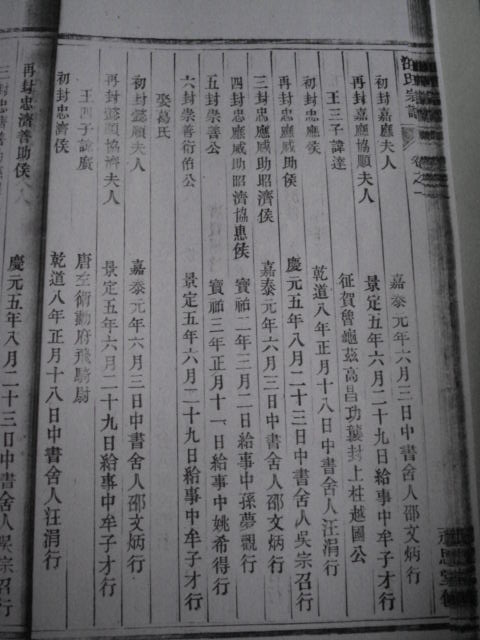 汪氏宗譜 卷之一
初封嘉應夫人 嘉泰元年六月三日中書舍人邵文炳行
再封嘉應協順夫人 景定五年六月二十九日給事中牟子才行
王三子諱達 征賀魯龜茲高昌功襲封上柱越國公
初封忠應侯 乾道八年正月十八日中書舍人汪涓行
再封忠應威助侯 慶元五年八月二十三日中書舍人吳宗召行
三封忠應威助昭濟侯 嘉泰元年六月三日中書舍人邵文炳行
四封忠應威助昭濟協惠侯 寶祐二年三月二日給事中孫夢觀行
五封崇善公 寶祐三年正月十一日給事中姚希得行
六封崇善衍公 景定五年六月二十九日給事中牟子才行
娶葛氏
初封懿順夫人 嘉泰元年六月三日中書舍人邵文炳行
再封懿順協濟夫人 景定五年六月二十九日給事中牟子才行
王四子諱廣 唐左衛勳府飛騎尉
初封忠濟侯 乾道八年正月十八日中書舍人汪涓行
再封忠濟善助侯 慶元五年八月二十三日中書舍人吳宗召行
三封忠濟善助